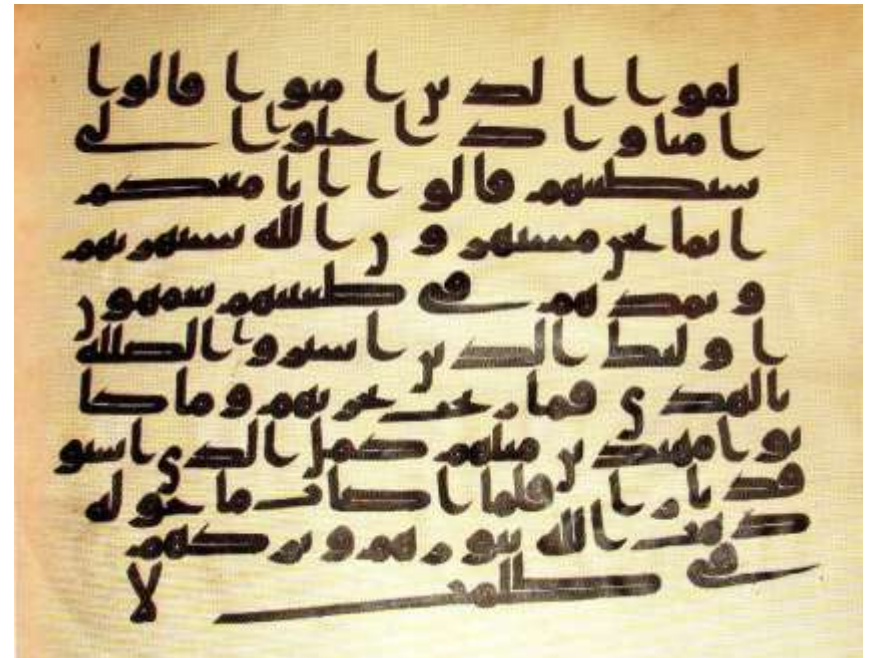 لقوا الذين امنوا قالوا
امنا واذا خلوا الى
شيطينهم قالوا انا معكم
انما نحن مستهزون الله يستهزى بهم
ويمدهم فى طغينهم يعمهون
اوليك الذين اشتروا الضلله
بالهدى فما ربحت تجرتهم وما كا
نوا مهتدين مثلهم كمثل الذى استو
قد نارا فلما اضات ما حوله
ذهب الله بنورهم وتركهم
فى ظلمت لا